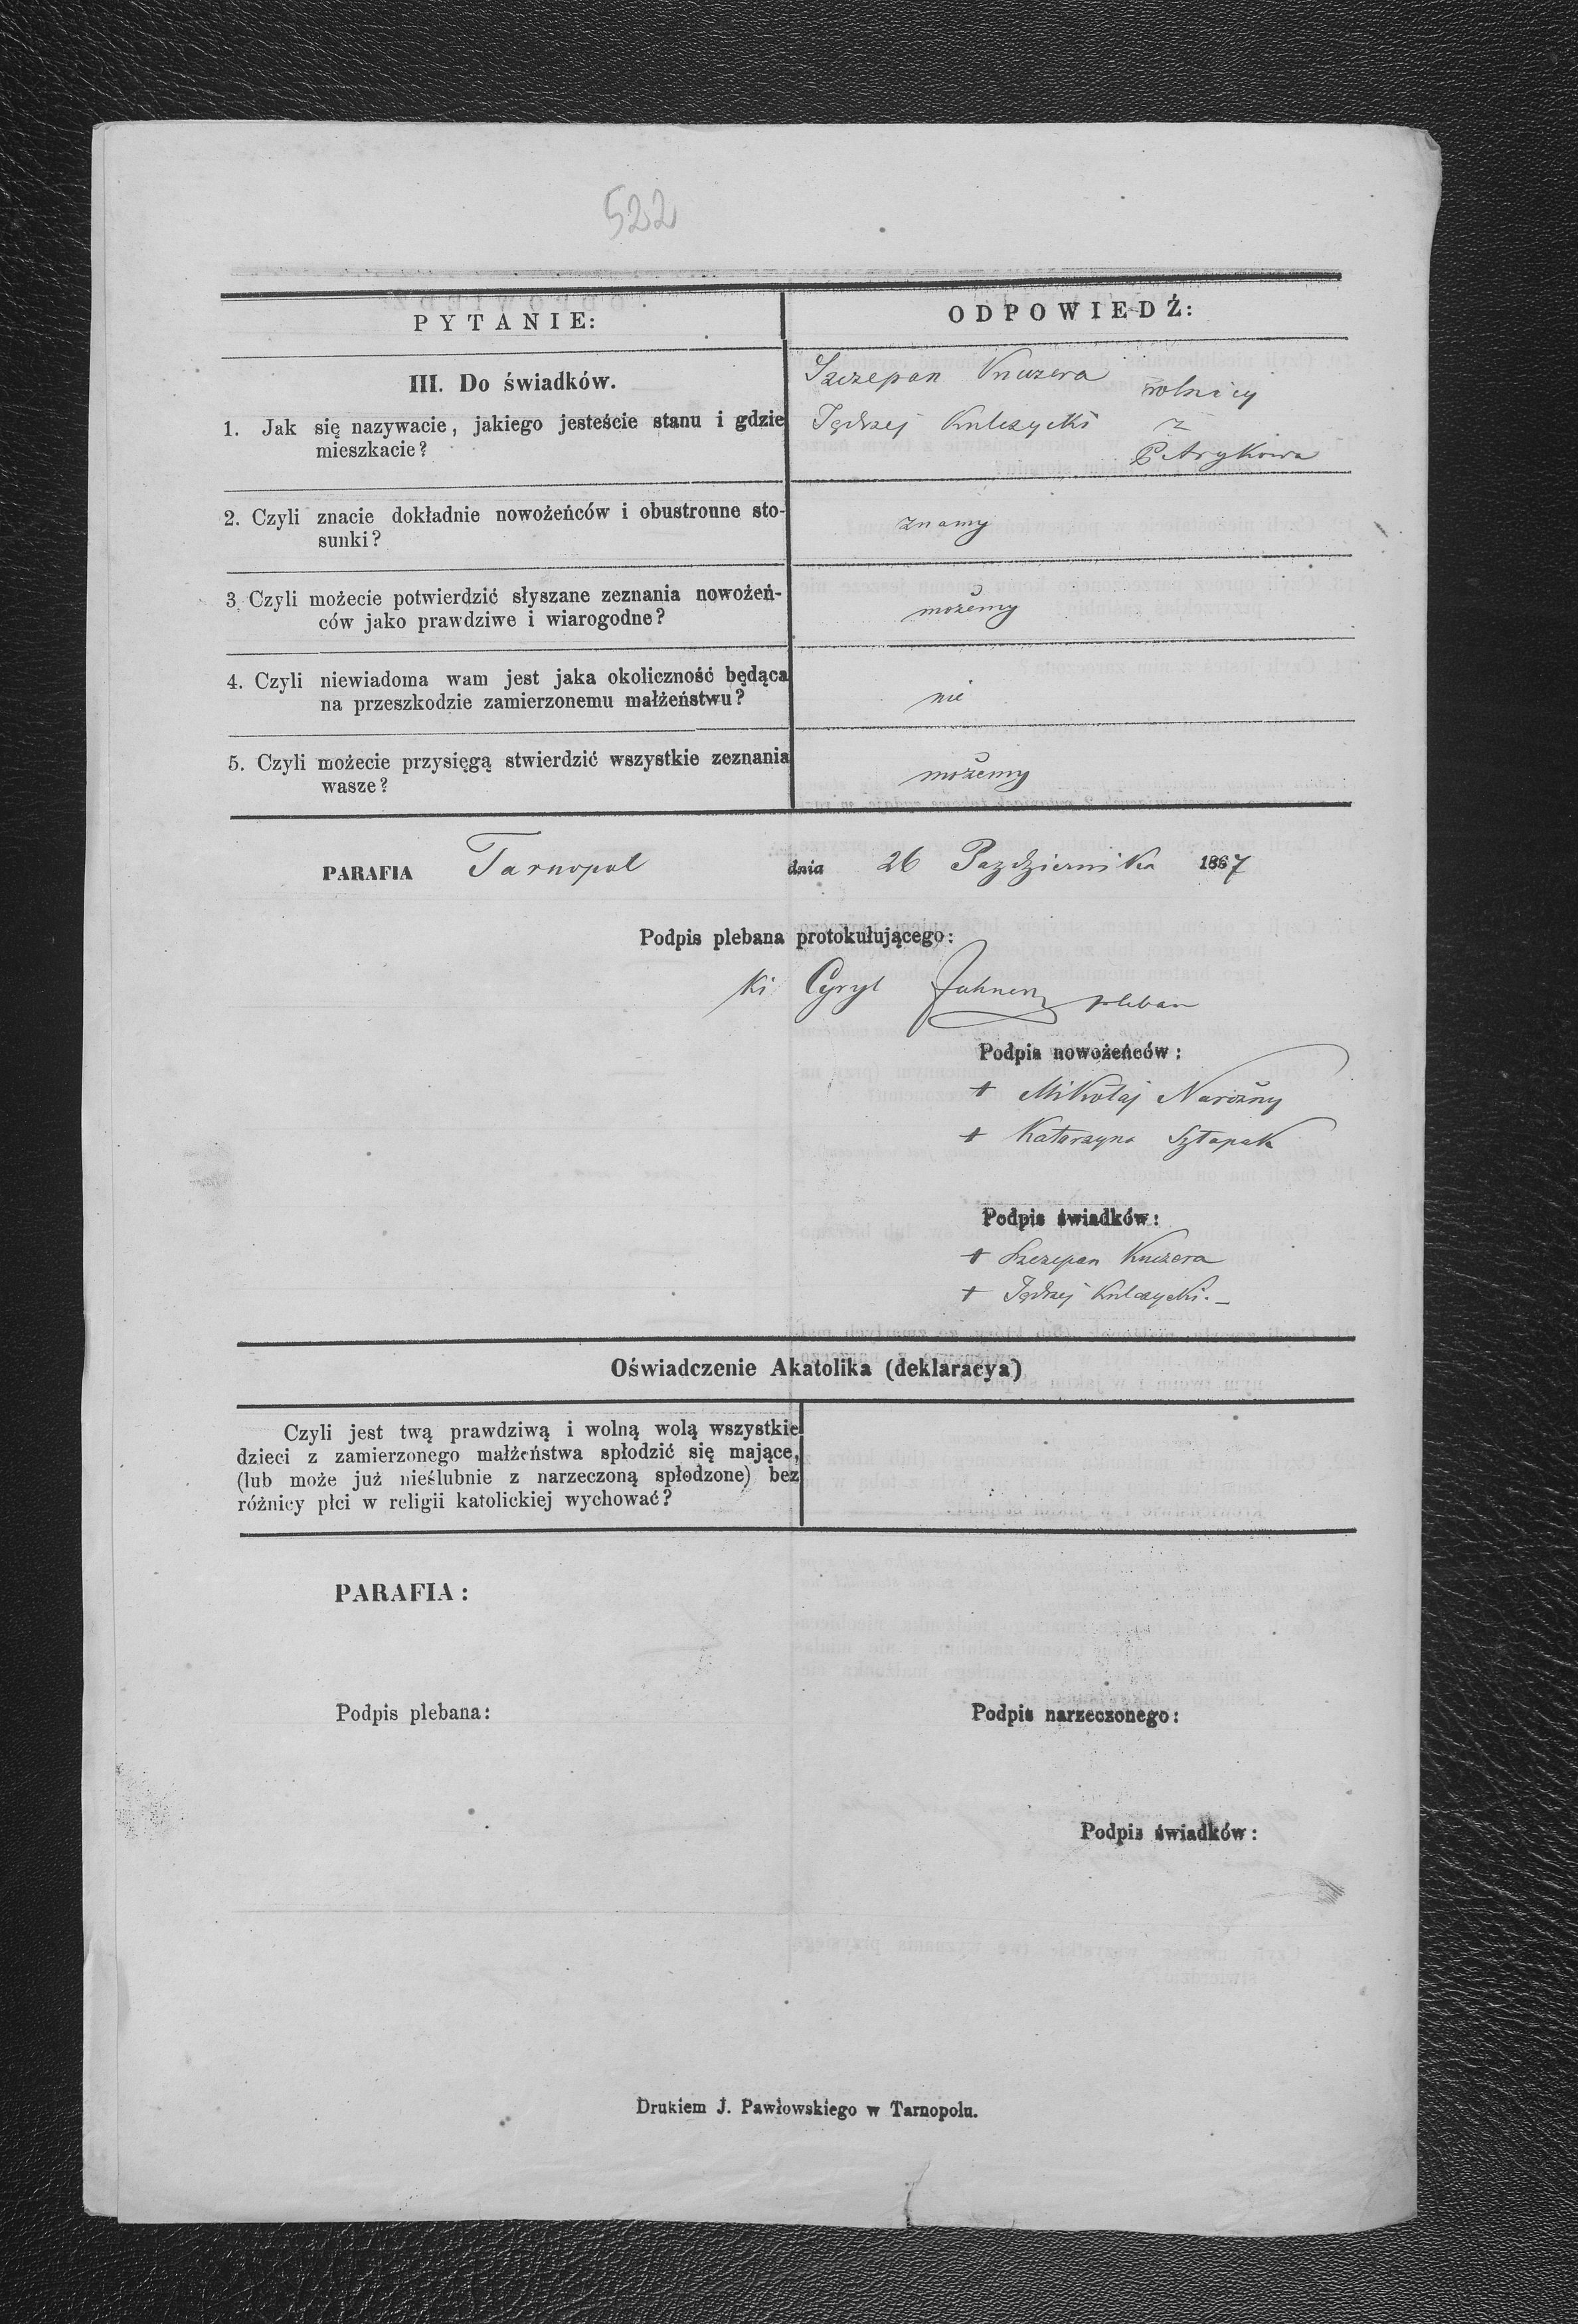 522
PYTANIE:
ODPOWIEDŹ:
III. Do świadków.
1. Jak się nazywacie, jakiego jesteście stanu i gdzie
mieszkacie?
Szczepan Kuczera rolnicy
Jędrzej Kulczycki z
Petrykowa
2. Czyli znacie dokładnie nowożeńców i obustronne sto-
sunki?
znamy
3. Czyli możecie potwierdzić słyszane zeznania nowożeń-
ców jako prawdziwe i wiarogodne?
możemy
4. Czyli niewiadoma wam jest jaka okoliczność będąca
na przeszkodzie zamierzonemu małżeństwu?
nie
5. Czyli możecie przysięgą stwierdzić wszystkie zeznania
wasze?
możemy
PARAFIA Tarnopol dnia 26 Pazdziernika 1867
Podpis plebana protokułującego:
Cyryl pleban
Podpis nowożeńców:
+ Mikołaj Narożny
+ Katarzyna Sztapak
Podpis świadków:
+ Szczepan Kuczera
+ Jędrzej Kulczycki. –
Oświadczenie Akatolika (deklaracya)
Czyli jest twą prawdziwą i wolną wolą wszystkie
dzieci z zamierzonego małżeństwa spłodzić się mające,
(lub może już nieślubnie z narzeczoną spłodzone) bez
różnicy płci w religii katolickiej wychować?
PARAFIA:
Podpis plebana:
Podpis narzeczonego:
Podpis świadków:
Drukiem J. Pawłowskiego w Tarnopolu.